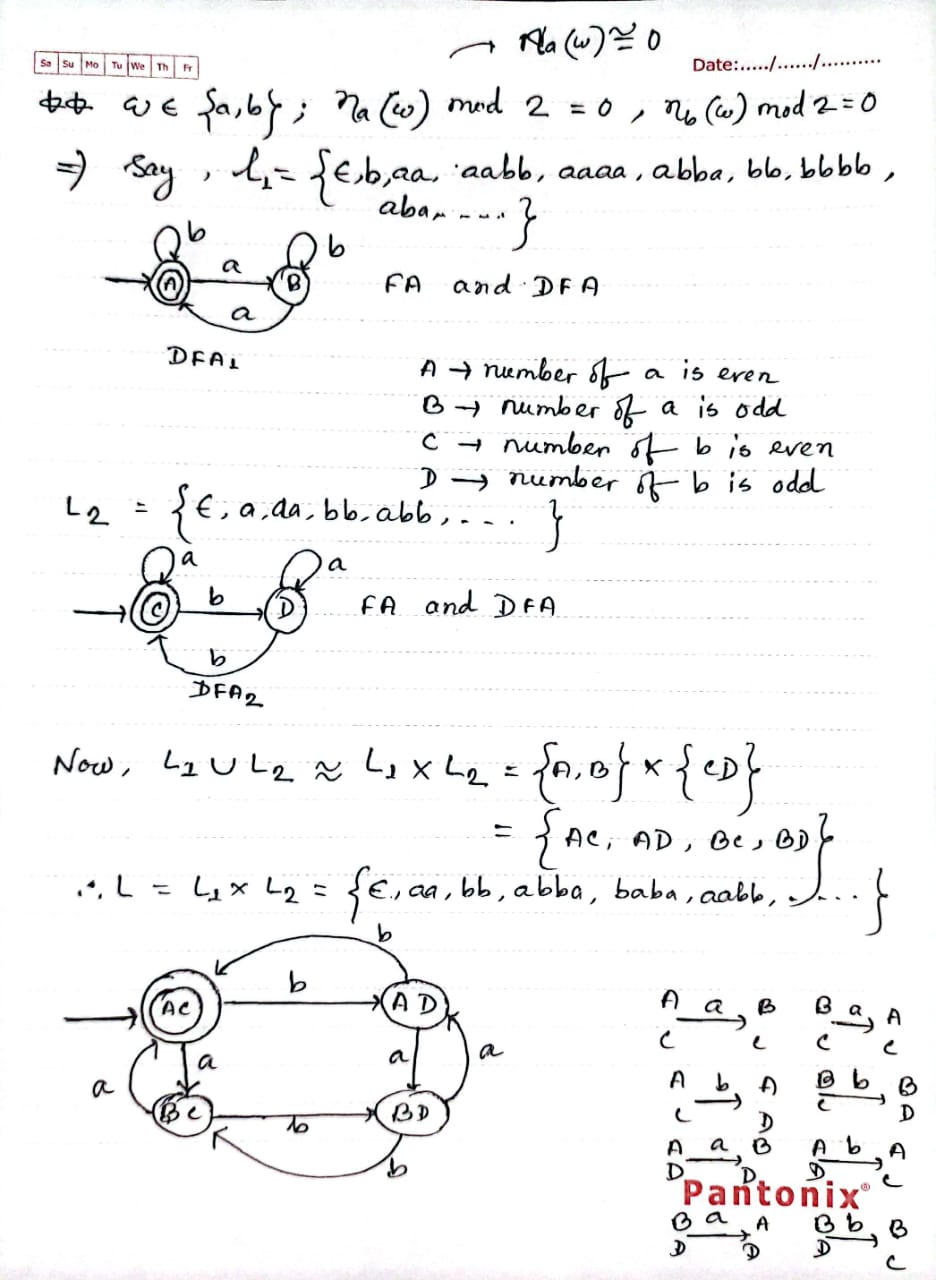 → na(w) ≅ 0
Sa Su Mo Tu We Th Fr
Date:...../....../..........
** w ∈ {a,b} ; na(w) mod 2 = 0 , nb(w) mod 2 = 0
⇒ Say , L1 = {ϵ,b,aa, aabb, aaaa, abba, bb, bbbb,
aba, ....}
b b
A a B FA and DFA
a
DFA1
A → number of a is even
B → number of a is odd
C → number of b is even
D → number of b is odd
L2 = {ϵ, a, aa, bb, abb, ....}
a a
C b D FA and DFA
b
DFA2
Now, L1 ∪ L2 ≈ L1 × L2 = {A,B} × {CD}
= {AC, AD, BC, BD}
∴ L = L1 × L2 = {ϵ, aa, bb, abba, baba, aabb, ....}
b
AC b AD
a a a a
BC b BD
b
A a B B a A
C C C C
A b A B b B
C D C D
A a B A b A
D D D C
Pantonix®
B a A B b B
D D D C